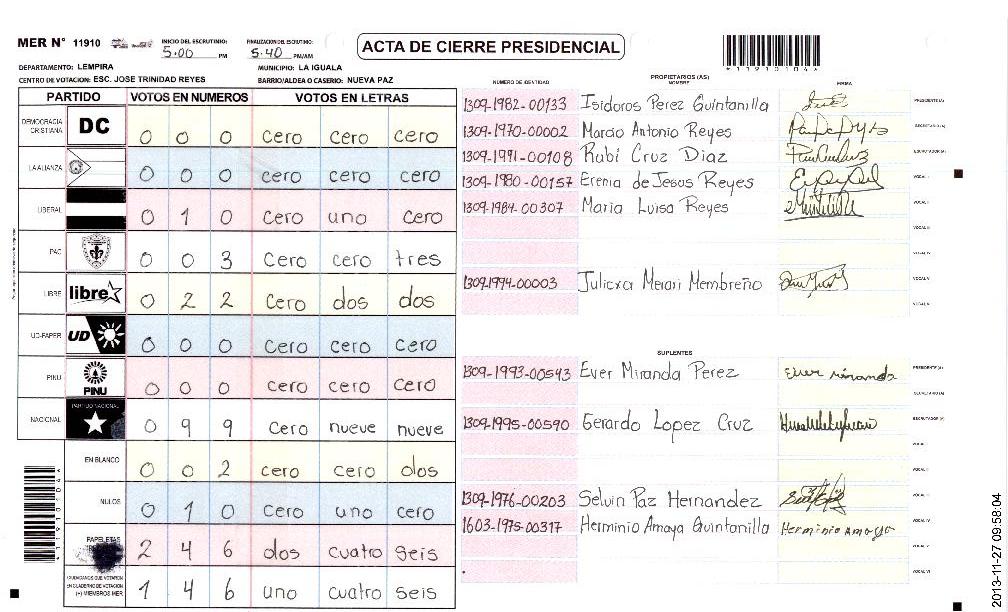 MER N° 11910
INICIO DEL ESCRUTINIO: 5:00 PM
FINALIZACION DEL ESCRUTINIO: 5:40 PM/AM
ACTA DE CIERRE PRESIDENCIAL
*11910104*
DEPARTAMENTO: LEMPIRA
MUNICIPIO: LA IGUALA
CENTRO DE VOTACION: ESC. JOSE TRINIDAD REYES
BARRIO/ALDEA O CASERIO: NUEVA PAZ
PARTIDO VOTOS EN NUMEROS VOTOS EN LETRAS
DEMOCRACIA CRISTIANA DC 0 0 0 cero cero cero
LA ALIANZA 0 0 0 cero cero cero
LIBERAL 0 1 0 cero uno cero
PAC 0 0 3 cero cero tres
LIBRE libre 0 2 2 cero dos dos
UD-FAPER UD 0 0 0 cero cero cero
PINU PINU 0 0 0 cero cero cero
NACIONAL PARTIDO NACIONAL 0 9 9 cero nueve nueve
EN BLANCO 0 0 2 cero cero dos
NULOS 0 1 0 cero uno cero
PAPELETAS 2 4 6 dos cuatro seis
CIUDADANOS QUE VOTARON EN CUADERNO DE VOTACION (+) MIEMBROS MER 1 4 6 uno cuatro seis
*11910104*
PROPIETARIOS (AS)
NUMERO DE IDENTIDAD NOMBRE FIRMA
1309-1982-00133 Isidoros Perez Quintanilla PRESIDENTE (A)
1309-1970-00002 Marcio Antonio Reyes SECRETARIO (A)
1309-1991-00108 Rubi Cruz Diaz ESCRUTADOR (A)
1309-1980-00157 Erenia de Jesus Reyes VOCAL I
1309-1984-00307 Maria Luisa Reyes VOCAL II
VOCAL III
VOCAL IV
1309-1994-00003 Merari Membreño VOCAL V
VOCAL VI
SUPLENTES
1309-1993-00543 Ever Miranda Perez Ever miranda PRESIDENTE (A)
SECRETARIO (A)
1309-1995-00590 Gerardo Lopez Cruz ESCRUTADOR (A)
VOCAL I
VOCAL II
1309-1976-00203 Selvin Paz Hernandez VOCAL III
1603-1975-00317 Herminio Amaya Quintanilla Herminio Amaya VOCAL IV
VOCAL V
VOCAL VI
2013-11-27 09:58:04